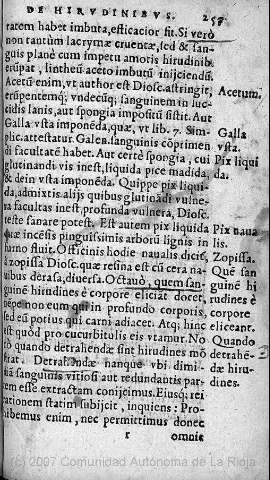 DE HIRVDINIBVS. 257
ratem habet imbuta, esticacior sit. Si verò
non tantùm lacrymæ cruentæ, sed & san-
guis planè cum impetu amoris hirudinib.
erũpat, lintheũ aceto imbutũ iniiciendũ.
Acetũ enim, vt author est Diosc. astringit,
erũpentemq; vndecũq; sanguinem in luc-
cidis lanis, aut spongia impositũ sistit. Aut
Galla vsta imponẽda, quæ, vt lib. 7. Sim-
plic. attestatur. Galen. sanguinis cõprimen
di facultatẽ habet. Aut certè spongia, cui
glutinandi vis inest, liquida pice madida,
& dein vsta imponẽda. Quippe pix liqui-
da, admixtis alijs quibus glutinãdi vulne-
ra facultas inest, profunda vulnera, Diosc.
teste sanare potest. Est autem pix liquida
quæ incẽsis pinguissimis arborũ lignis in
furno fluit. Officinis hodie naualis dicit,
à zopissa Diosc. quæ resina est cũ cera na-
uibus derasa, diuersa. Octauò, quem san-
guinẽ hirudines è corpore eliciãt docet,
nempe non eum qui in profundo corporis,
sed eũ potius qui carni adiacet. Atq; hinc
est quòd pro cucurbitulis eis vtamur. No
nò quando detrahendæ sint hirudines mõ
strat. Detrahendæ nanque vbi dimi-
diã sanguinis vitiosi aut redundantis par-
tem esse extractam conijcimus. Eiusq; rei
rationem statim subijcit, inquiens: Pro-
hibemus enim, nec permittimus donec
r omnis
Acetum.
Galla
vsta.
Pix liqui
da.
Pix naua
lis.
Zopissa.
Quẽ san
guinẽ hi
rudines è
corpore
eliceant.
Quando
detrahẽ-
dæ hiru-
dines.
(c) 2007 Comunidad Autónoma de La Rioja